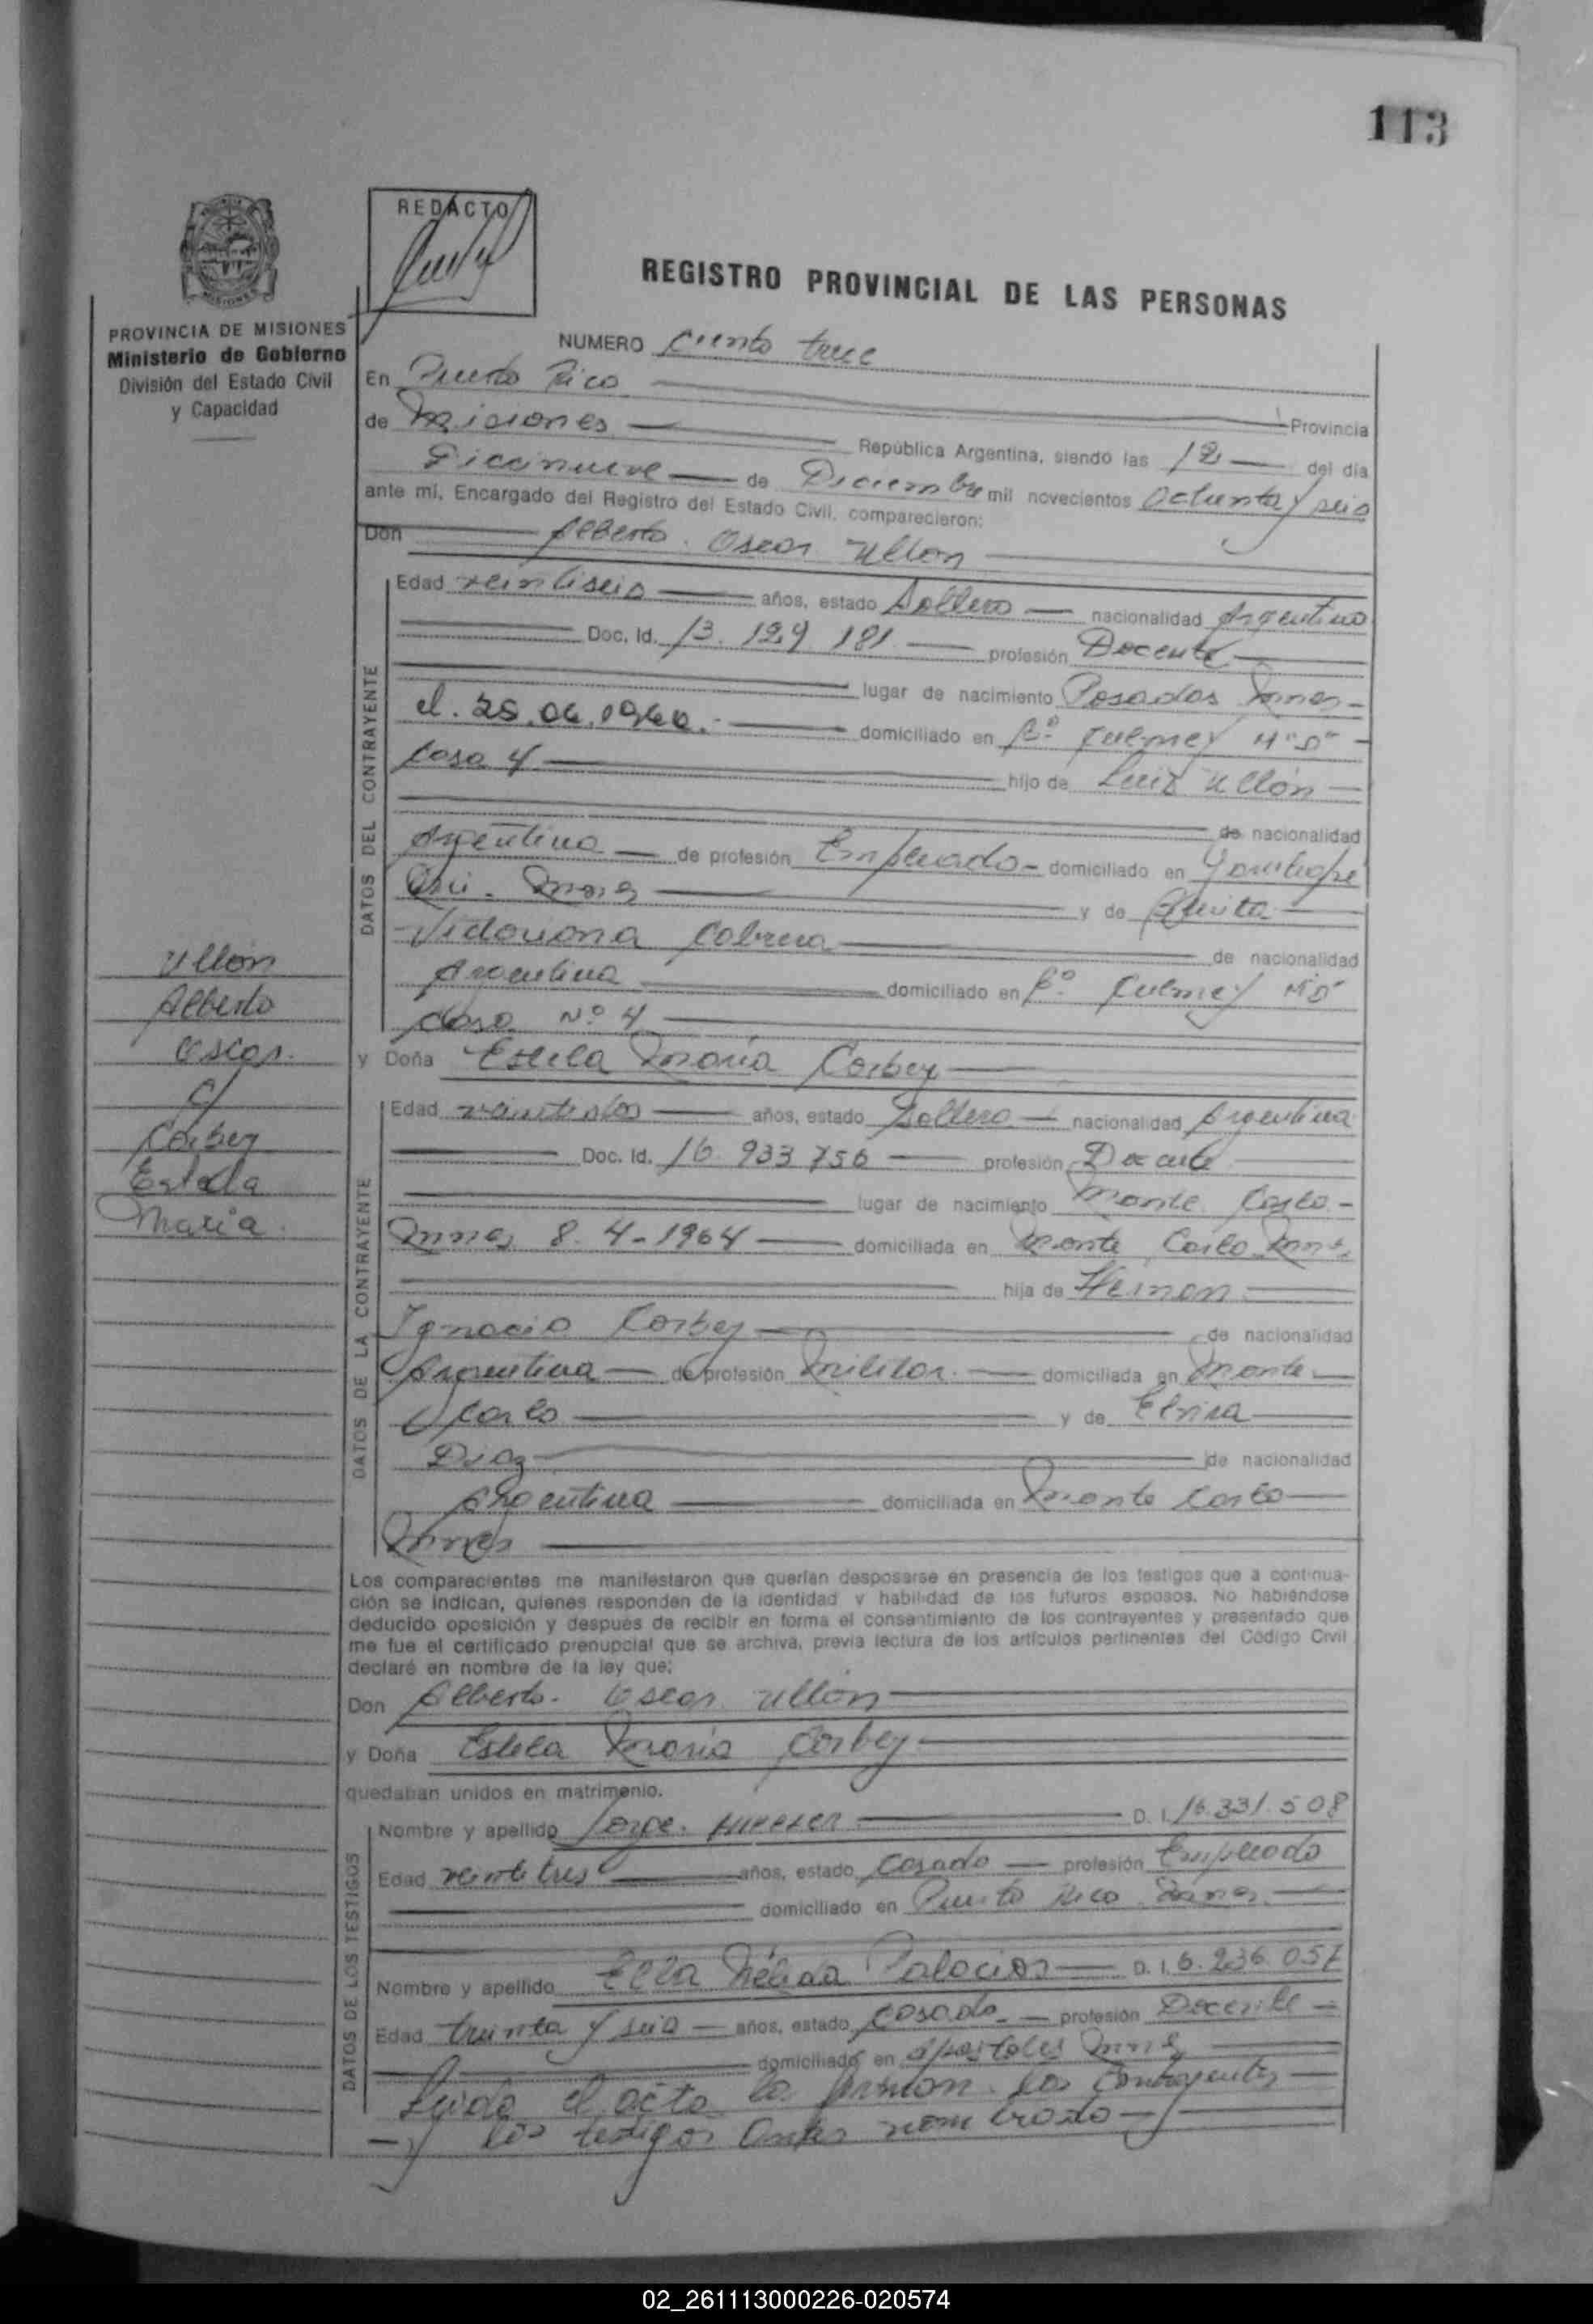 113
REDACTO
REGISTRO PROVINCIAL DE LAS PERSONAS
PROVINCIA DE MISIONES
Ministerio de Gobierno
División del Estado Civil
y Capacidad
NUMERO ciento trece
En Puerto Rico Provincia
de Misiones República Argentina, siendo las 12 del día
Diecinueve de Diciembre mil novecientos Ochenta y seis
ante mí, Encargado del Registro del Estado Civil, comparecieron:
Don Alberto Oscar Ullon
Edad veintiseis años, estado Soltero nacionalidad Argentino
Doc. Id. 13.124.181 profesión Docente
lugar de nacimiento Posadas Mnes
el 25.06.1960. domiciliado en Bº Culmey M"D"
Casa 4 hijo de Luis Ullón
de nacionalidad
Argentina de profesión Empleado domiciliado en
Mnes y de
Cabrera de nacionalidad
Argentina domiciliado en Bº Culmey M"D"
Casa Nº 4
y Doña Estela María Corbey
Edad veintidos años, estado Soltera nacionalidad Argentina
Doc. Id. 16.933.756 profesión Docente
lugar de nacimiento Monte Carlo
Mnes 8-4-1964 domiciliada en Monte Carlo Mnes
hija de Hernan
Ignacio Corbey de nacionalidad
Argentina de profesión Militar domiciliada en Monte
Carlo y de Elvira
Diaz de nacionalidad
Argentina domiciliada en Monte Carlo
Mnes
DATOS DEL CONTRAYENTE
DATOS DE LA CONTRAYENTE
Ullon
Alberto
Oscar.
c/
Corbey
Estela
Maria.
Los comparecientes me manifestaron que querían desposarse en presencia de los testigos que a continua-
ción se indican, quienes responden de la identidad y habilidad de los futuros esposos. No habiéndose
deducido oposición y después de recibir en forma el consentimiento de los contrayentes y presentado que
me fue el certificado prenupcial que se archiva, previa lectura de los artículos pertinentes del Código Civil
declaré en nombre de la ley que:
Don Alberto Oscar Ullón
y Doña Estela María Corbey
quedaban unidos en matrimonio.
Nombre y apellido Jorge D. I. 16.331.508
Edad veintitres años, estado Casado profesión Empleado
domiciliado en Puerto Rico Mnes
Nombre y apellido Nélida Palacios D. I. 6.236.057
Edad treinta y seis años, estado Casada profesión Docente
domiciliado en Apostoles Mnes
DATOS DE LOS TESTIGOS
Leida el acta la firman los Contrayentes
y los testigos Antes nombrado
02_261113000226-020574